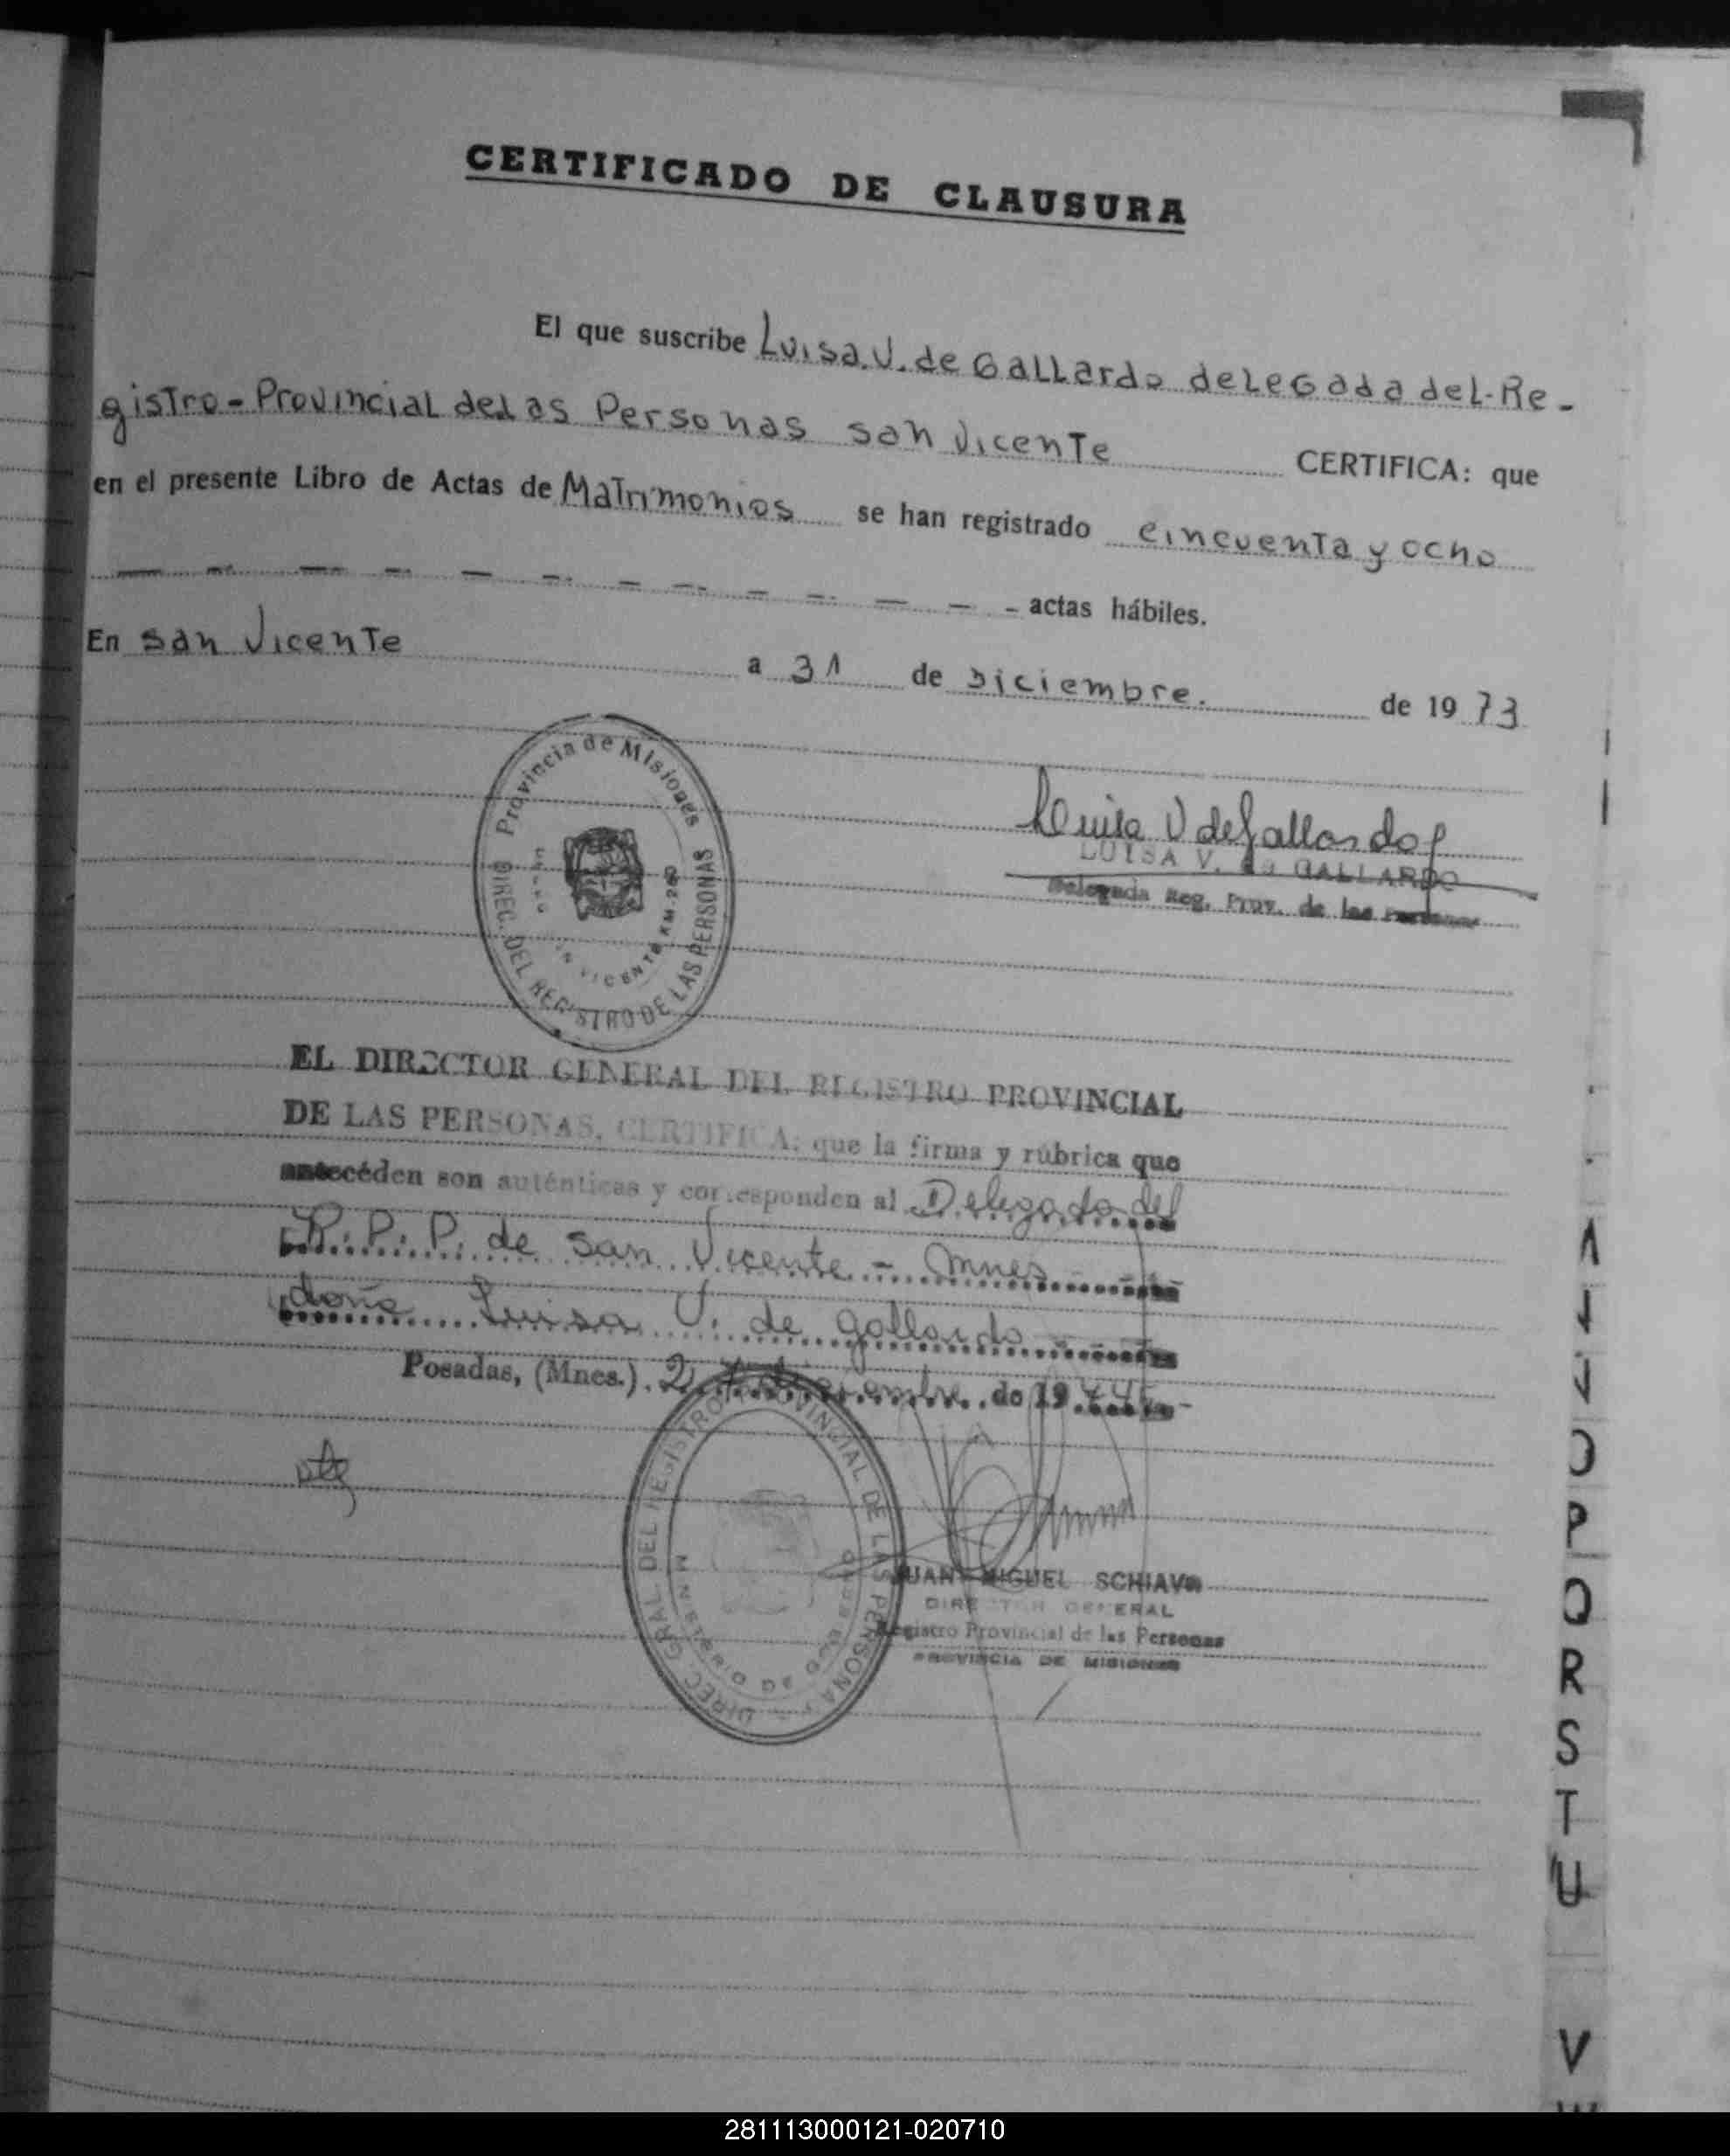 CERTIFICADO DE CLAUSURA
El que suscribe Luisa.V.de Gallardo delegada del-Re-
gistro-Provincial delas Personas san vicente CERTIFICA: que
en el presente Libro de Actas de Matrimonios se han registrado cincuenta y ocho
actas hábiles.
En san vicente a 31 de Diciembre. de 1973
Provincia de Misiones
DIREC. DEL REGISTRO DE LAS PERSONAS
VICENTE KM.
Luisa V de Gallardo
LUISA V. de GALLARDO
Delegada Reg. Prov. de las Personas
EL DIRECTOR GENERAL DEL REGISTRO PROVINCIAL
DE LAS PERSONAS, CERTIFICA: que la firma y rúbrica que
anteceden son auténticas y corresponden al Delegado del
R.P.P. de San Vicente - Mnes
doña Luisa V. de gallardo
Posadas, (Mnes.) de 19
DIREC. GRAL DEL REGISTRO PROVINCIAL DE LAS PERSONAS
MINISTERIO DE GOBIERNO
JUAN MIGUEL SCHIAVO
DIRECTOR GENERAL
Registro Provincial de las Personas
PROVINCIA DE MISIONES
P
Q
R
S
T
U
V
281113000121-020710